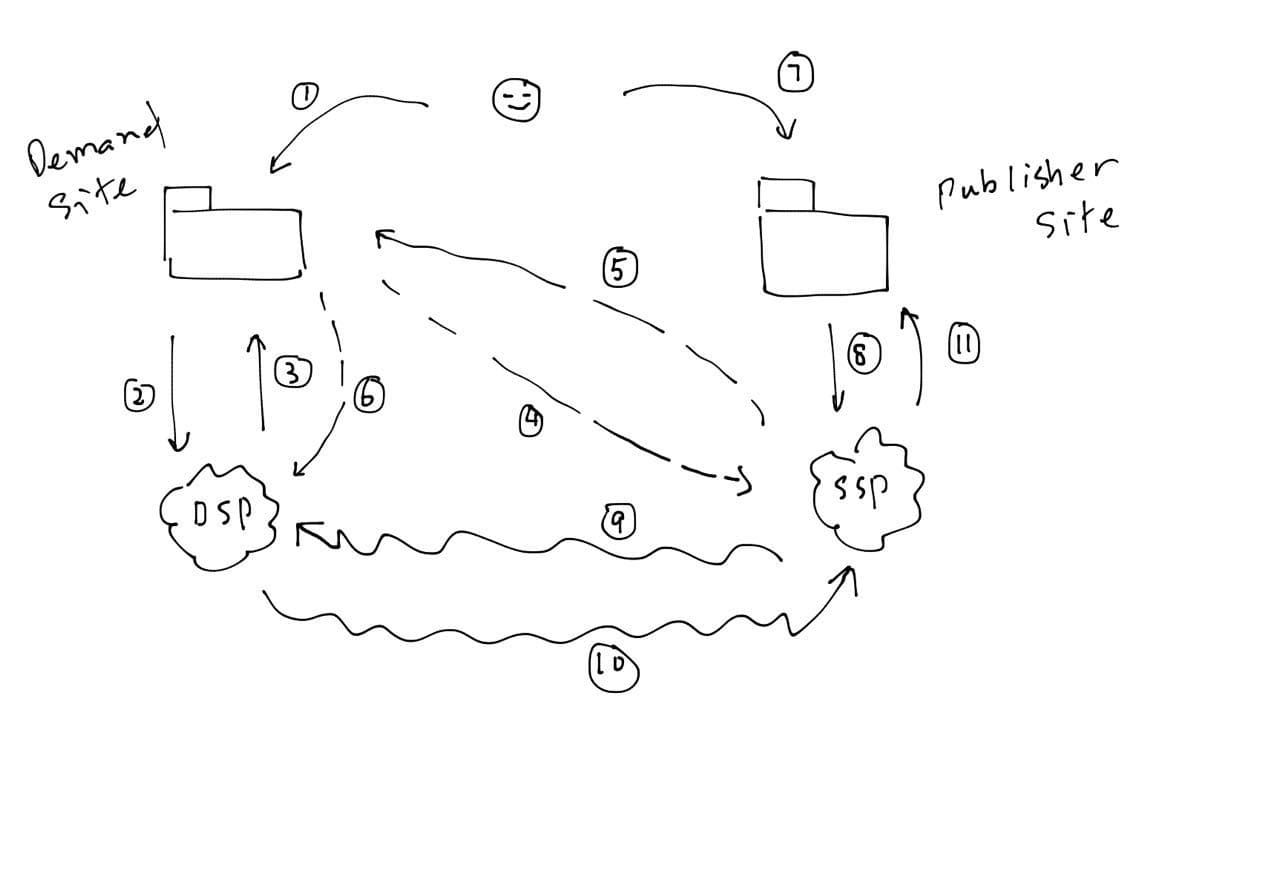 1
7
Demand
Site
Publisher
Site
5
8
11
3
2
6
4
DSP
SSP
9
10